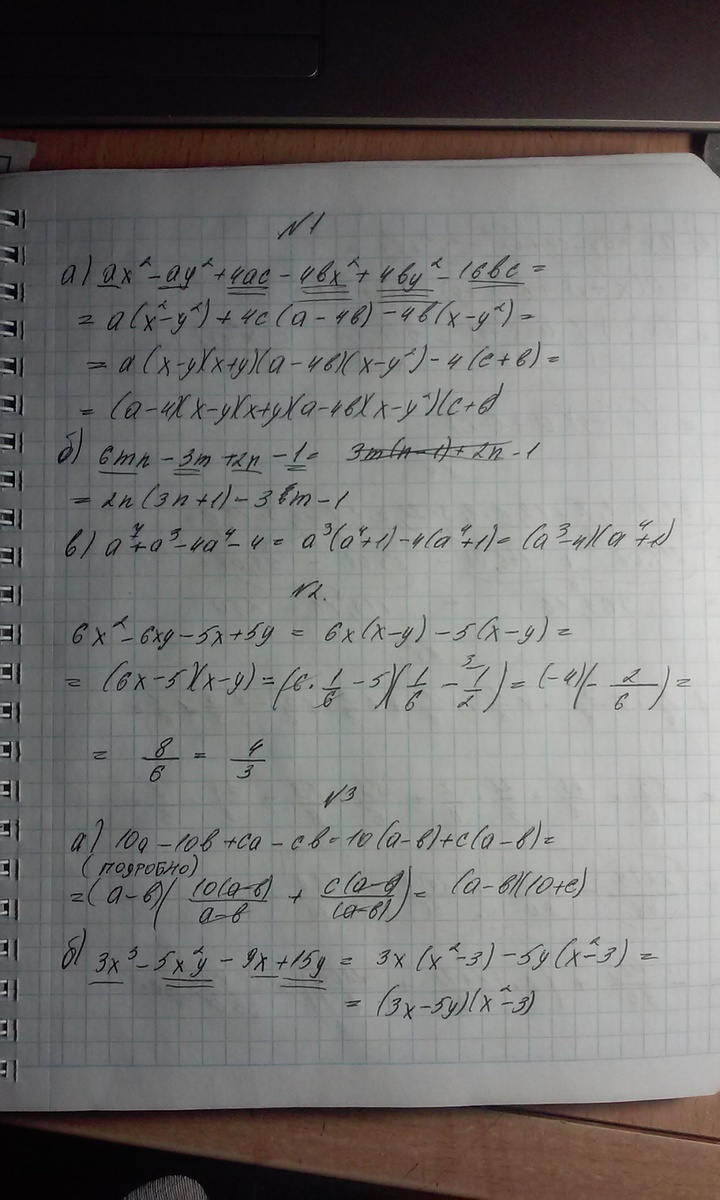 №1
а) ax² - ay² + 4ac - 4bx² + 4by² - 16bc =
= a(x² - y²) + 4c(a - 4b) - 4b(x - y²) =
= a(x-y)(x+y)(a - 4b)(x - y²) - 4(c + b) =
= (a-4)(x-y)(x+y)(a-4b)(x-y²)(c+b)
б) 6mn - 3m + 2n - 1 = 3m(n-1) + 2n - 1
= 2n(3n+1) - 3m - 1
в) a⁷ + a³ - 4a⁴ - 4 = a³(a⁴+1) - 4(a⁴+1) = (a³-4)(a⁴+1)
№2.
6x² - 6xy - 5x + 5y = 6x(x-y) - 5(x-y) =
= (6x-5)(x-y) = (6·1/6 - 5)(1/6 - ³1/2) = (-4)(- 2/6) =
= 8/6 = 4/3
№3
а) 10a - 10b + ca - cb = 10(a-b) + c(a-b) =
(ПОДРОБНО)
= (a-b)(10(a-b)/a-b + c(a-b)/(a-b)) = (a-b)(10+c)
б) 3x³ - 5x²y - 9x + 15y = 3x(x²-3) - 5y(x²-3) =
= (3x-5y)(x²-3)